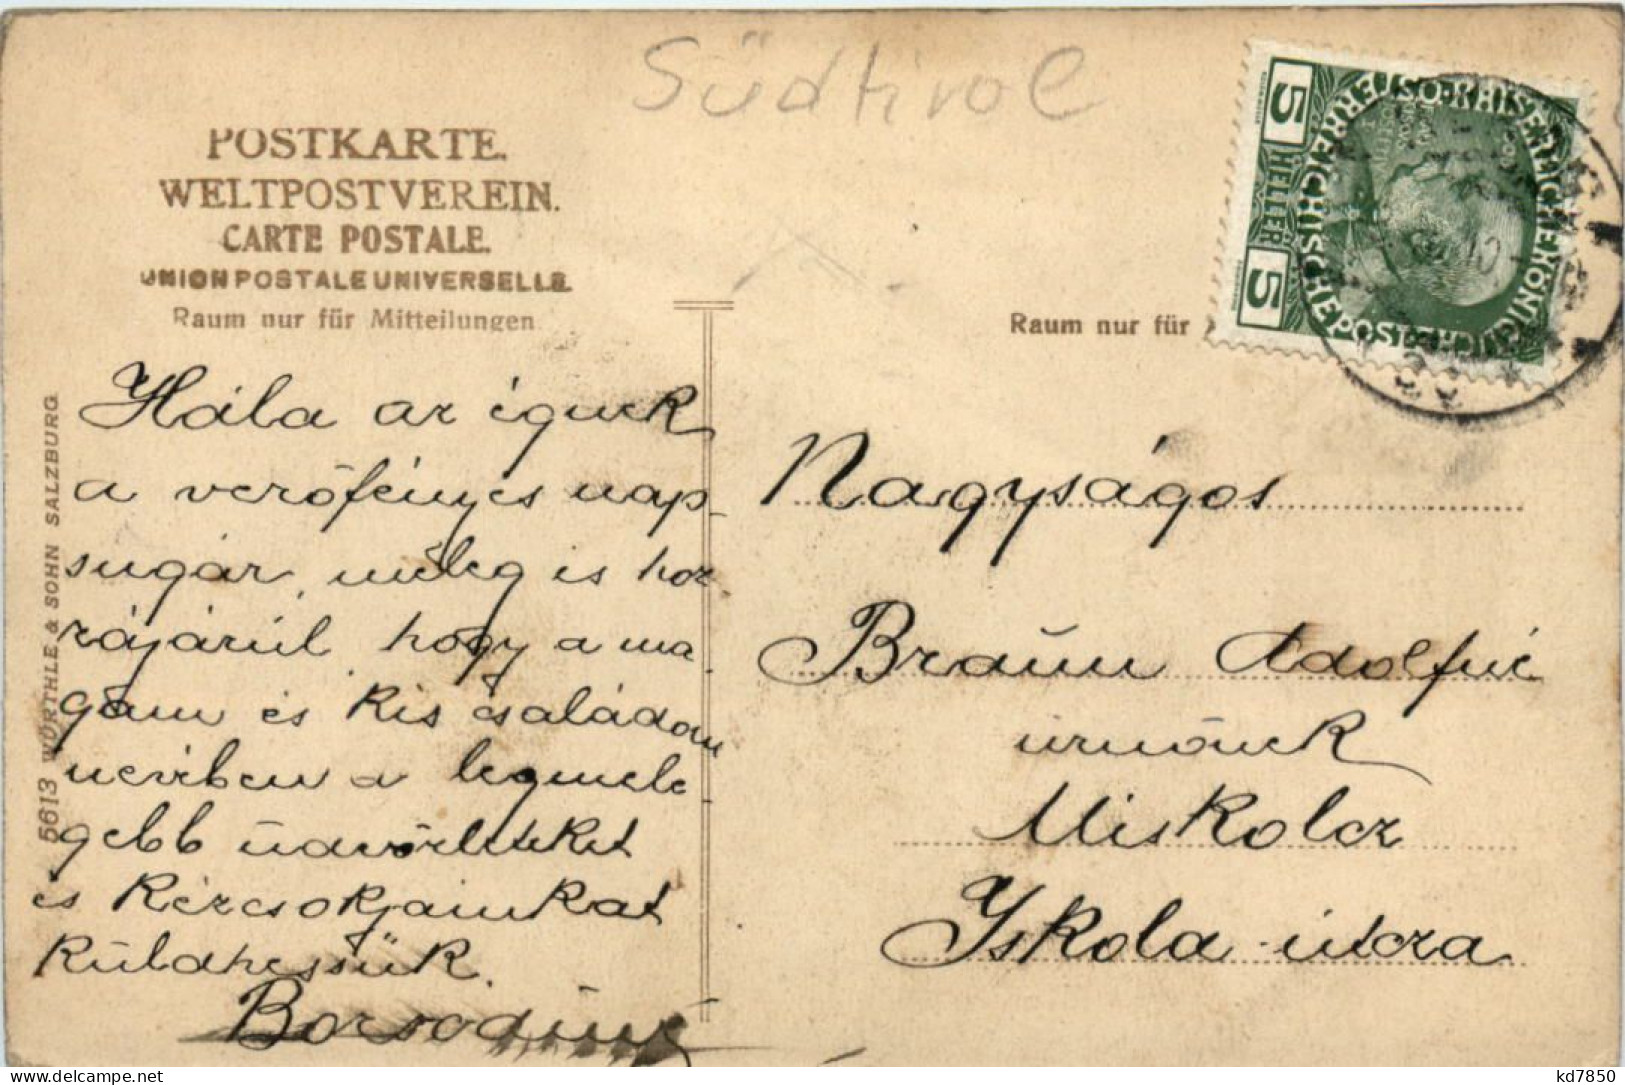 Südtirol
POSTKARTE.
WELTPOSTVEREIN.
CARTE POSTALE.
UNION POSTALE UNIVERSELLE.
Raum nur für Mitteilungen
Raum nur für
5 HELLER 5
KAISERLICHE KÖNIGLICHE ÖSTERREICHISCHE POST
5613 WÜRTHLE & SOHN SALZBURG.
Hála az égnek
a verőfényes nap
sugár, meleg is hoz
zájárúl, hogy a ma
gam és kis családom
nevében a legmele
gebb üdvözleteket
és kézcsókjainkat
küldhessük.
Borsodiné
Nagyságos
Braun Adolfné
úrnőnek
Miskolcz
Iskola-útcza
kd7850